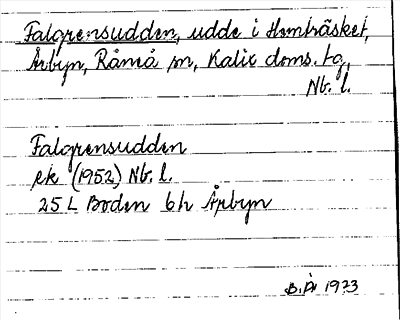 Falgrensudden, udde i Hemträsket,
Årbyn, Råneå sn, Kalix doms. tg,
Nb. l.
Falgrensudden
ek (1952) Nb. l.
25 L Boden 6h Årbyn
B.Å 1973